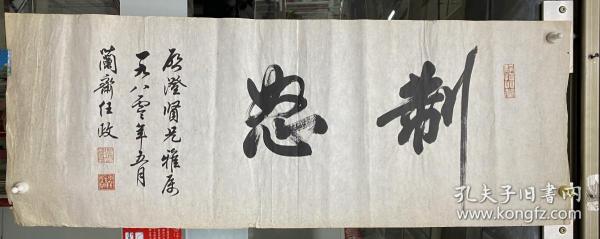 制怒
启澄贤兄雅属
一九八零年五月
蘭齋任政
孔夫子旧书网
www.kongfz.com